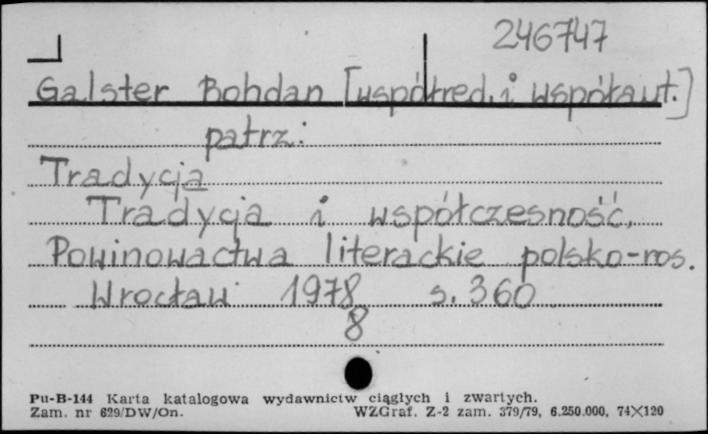 246747
Galster Bohdan [współred. i współaut.]
patrz:
Tradycja
Tradycja i współczesność.
Powinowactwa literackie polsko-ros.
Wrocław 1978 s. 360
8
Pu-B-144 Karta katalogowa wydawnictw ciągłych i zwartych.
Zam. nr 629/DW/On. WZGraf. Z-2 zam. 379/79, 6.250.000, 74X120